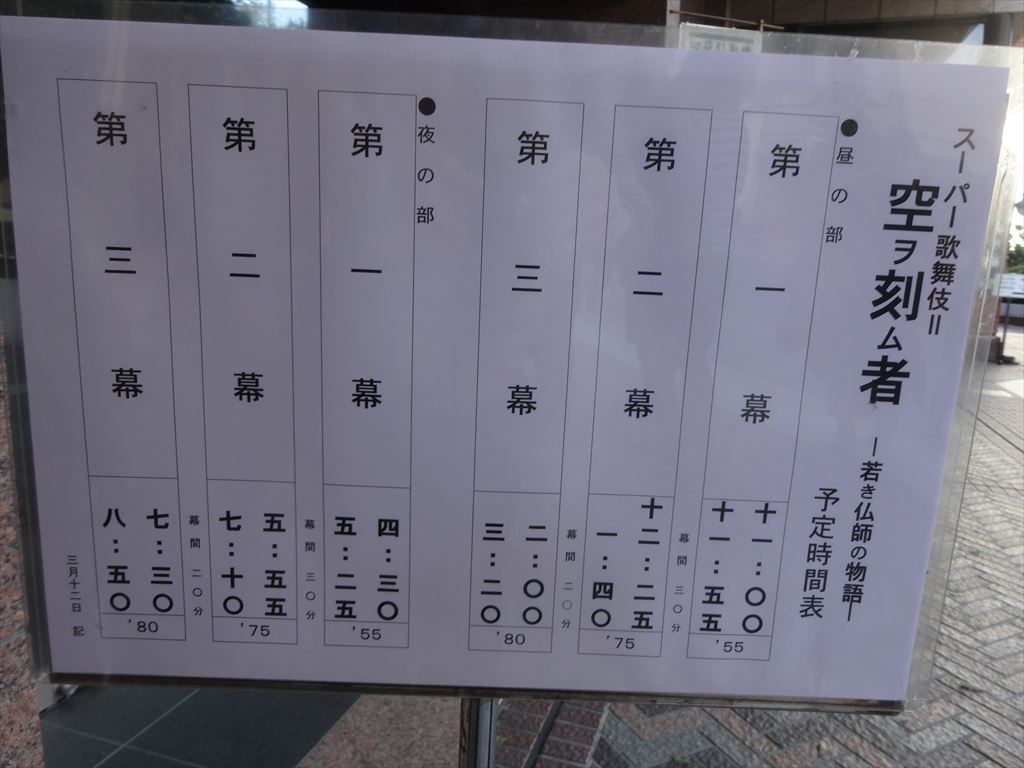 スーパー歌舞伎Ⅱ
空ヲ刻ム者
―若き仏師の物語―
予定時間表
●昼の部
第一幕
十一:〇〇
十一:五五
'55
幕間 三〇分
第二幕
十二:二五
一:四〇
'75
幕間 二〇分
第三幕
二:〇〇
三:二〇
'80
●夜の部
第一幕
四:三〇
五:二五
'55
幕間 三〇分
第二幕
五:五五
七:十〇
'75
幕間 二〇分
第三幕
七:三〇
八:五〇
'80
三月十二日 記